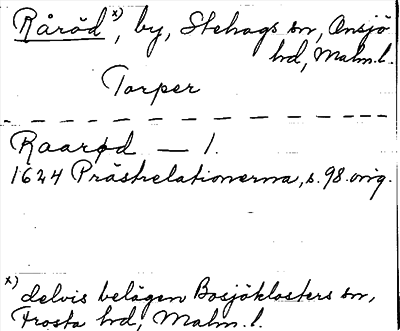 Råröd x), by, Stehags sn, Onsjö
hd, Malm.l.
Torper
Raarød — 1.
1624 Prästrelationerna, s. 98. orig.
x) delvis belägen Bosjöklosters sn,
Frosta hd, Malm.l.